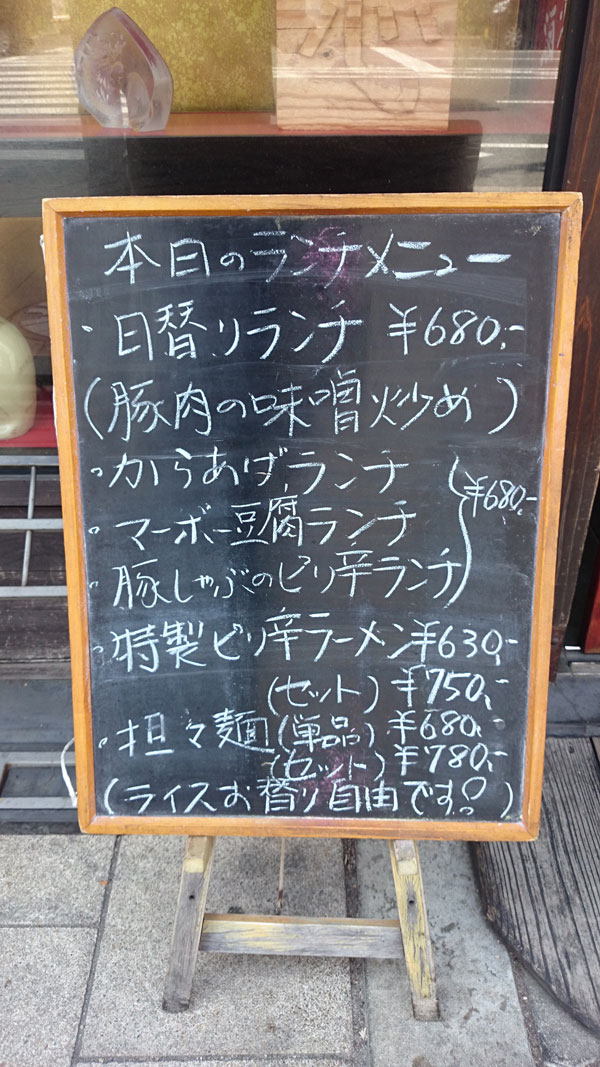 本日のランチメニュー
・日替りランチ ¥680.-
(豚肉の味噌炒め)
・からあげランチ
・マーボー豆腐ランチ
・豚しゃぶのピリ辛ランチ
¥680-
・特製ピリ辛ラーメン¥630.-
(セット) ¥750.-
・担々麺(単品) ¥680.-
(セット) ¥780.-
(ライスお替り自由です!)